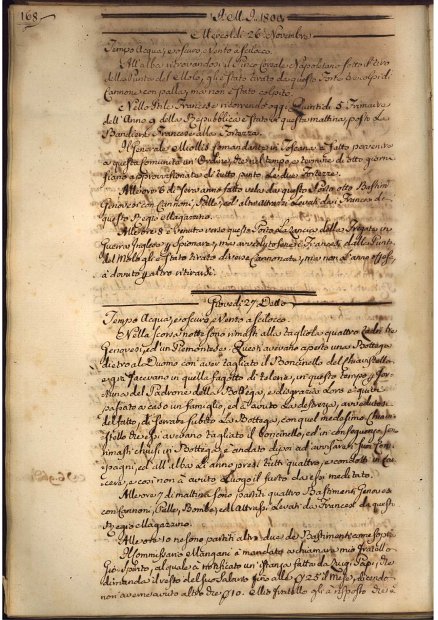 168
A.M.D. 1800.
Mercoldi 26 Novembre
Tempo Acqua, e oscuro, Vento à Scilocco.
All'alba ritrovandosi il Pinco Corsale Napoletano sotto il tiro
della Punta del Molo, gli è stato tirato da questo Forte tre colpi di
Cannone con palla, mà non è stato colpito.
Nello Stile Francese ricorrendo oggi Quintidì 5 Frimaire
dell'Anno 9 della Repubblica è stato in questa mattina, posto la
Bandiera Francese alla Fortezza.
Il Generale Miollis Comandante in Toscana à fatto pervenire
a questa Comunità un Ordine, che nel tempo, e termine di otto giorni
siano approvisionate di tutto punto le due Fortezze.
Alle ore 6 di sera anno fatto vela da questo Porto otto Bastimenti
Genovesi con Cannoni, Palle, ed' altri levati dai Francesi da
questo Regio Magazzino.
Alle ore 8 è venuto verso questo Porto la Lancia della Fregata in
Guerra Inglese à spionare, mà avvedutosene i Francesi dalla Punta
del Molo gli è stato tirato Cannonate, mà non l'anno offesa,
à dovuto ritirarsi.
Giovedi 27 Detto
Tempo Acqua, e oscuro, Vento à Scilocco.
Nella scorsa notte sono rimasti alla tagliola quattro Ladri tre
Genovesi, ed' un Piemontese. Questi avevano aperto una Bottega
dietro al Duomo con aver tagliato il Boncinello del Chiavistello
e già facevano in quella fagotto di telerie, in questo tempo per for-
tuna del Padrone della Bottega, e disgrazia loro è quivi
passato a caso un famiglio, ed à avuto la destrezza, avvedutosi
del fatto, di serrare subito la Bottega, con quel medesimo Chiavi-
stello che essi avevano tagliato il boncinello, ed in conseguenza son
rimasti chiusi in Bottega, è andato di poi ad' avvisare i suoi Com-
pagni, ed' all'alba li anno presi tutti quattro, e condotti in Car-
cere, e così non à avuto luogo il furto da essi meditato.
Alle ore 7 di mattina sono partiti quattro Bastimenti Genovesi
con Cannoni, Palle, Bombe, ed' altro levati da Francesi da questo
Regio Magazzino.
Alle ore 10 ne sono partiti altri due de Bastimenti come sopra.
Il Commissario Mangani à mandato a chiamare mio Fratello
Gio: Spirito, al quale à notificato un'istanza fatta da Luigi Papi, che
dimanda il resto del suo Salario fino alle 25 il Mese, dicendo
non avere avuto altro che 10. Esso fratello gli à risposto che è